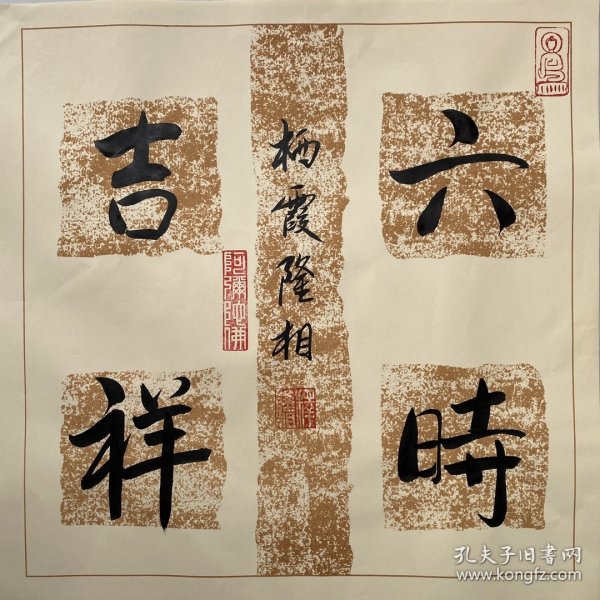 六時
吉祥
栖霞隆相
阿彌陀佛
孔夫子旧书网
www.kongfz.com